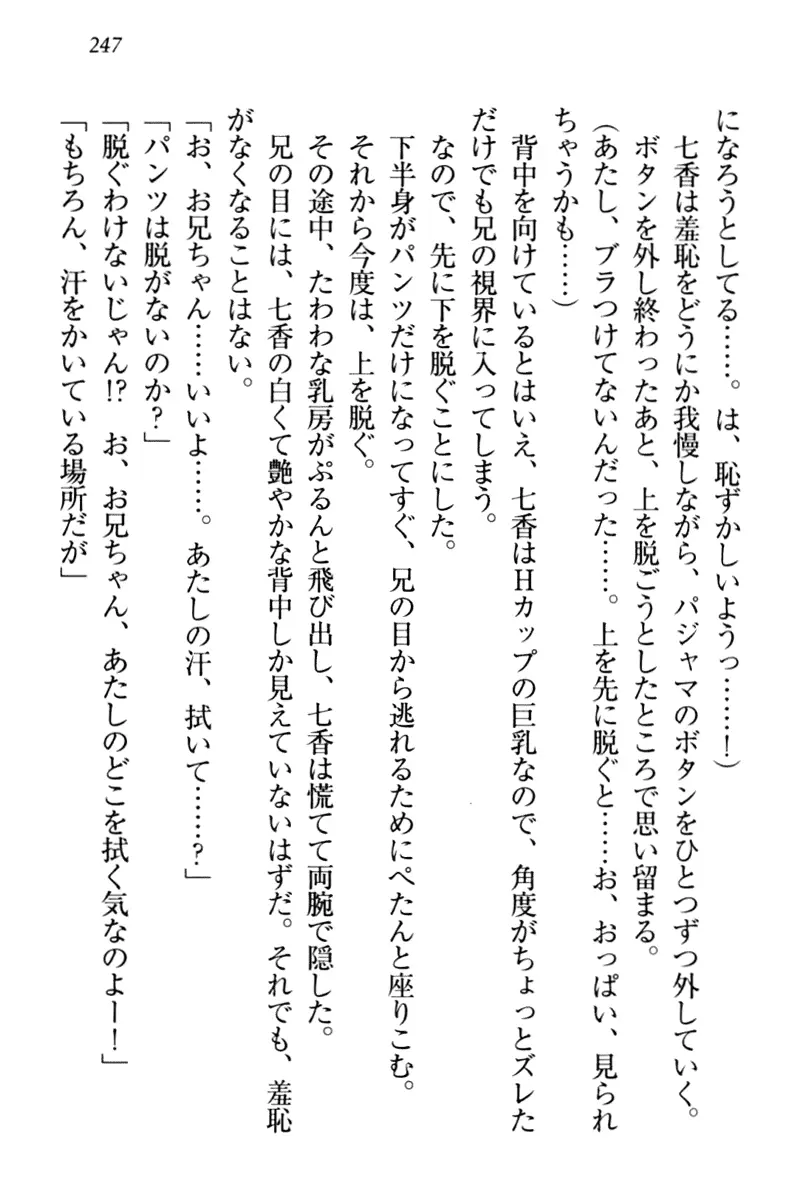 247
になろうとしてる……。は、恥ずかしいようっ……！）
七香は羞恥をどうにか我慢しながら、パジャマのボタンをひとつずつ外していく。
ボタンを外し終わったあと、上を脱ごうとしたところで思い留まる。
（あたし、ブラつけてないんだった……。上を先に脱ぐと……お、おっぱい、見られ
ちゃうかも……）
背中を向けているとはいえ、七香はHカップの巨乳なので、角度がちょっとズレた
だけでも兄の視界に入ってしまう。
なので、先に下を脱ぐことにした。
下半身がパンツだけになってすぐ、兄の目から逃れるためにぺたんと座りこむ。
それから今度は、上を脱ぐ。
その途中、たわわな乳房がぷるんと飛び出し、七香は慌てて両腕で隠した。
兄の目には、七香の白くて艶やかな背中しか見えていないはずだ。それでも、羞恥
がなくなることはない。
「お、お兄ちゃん……いいよ……。あたしの汗、拭いて……？」
「パンツは脱がないのか？」
「脱ぐわけないじゃん!?　お、お兄ちゃん、あたしのどこを拭く気なのよー！」
「もちろん、汗をかいている場所だが」